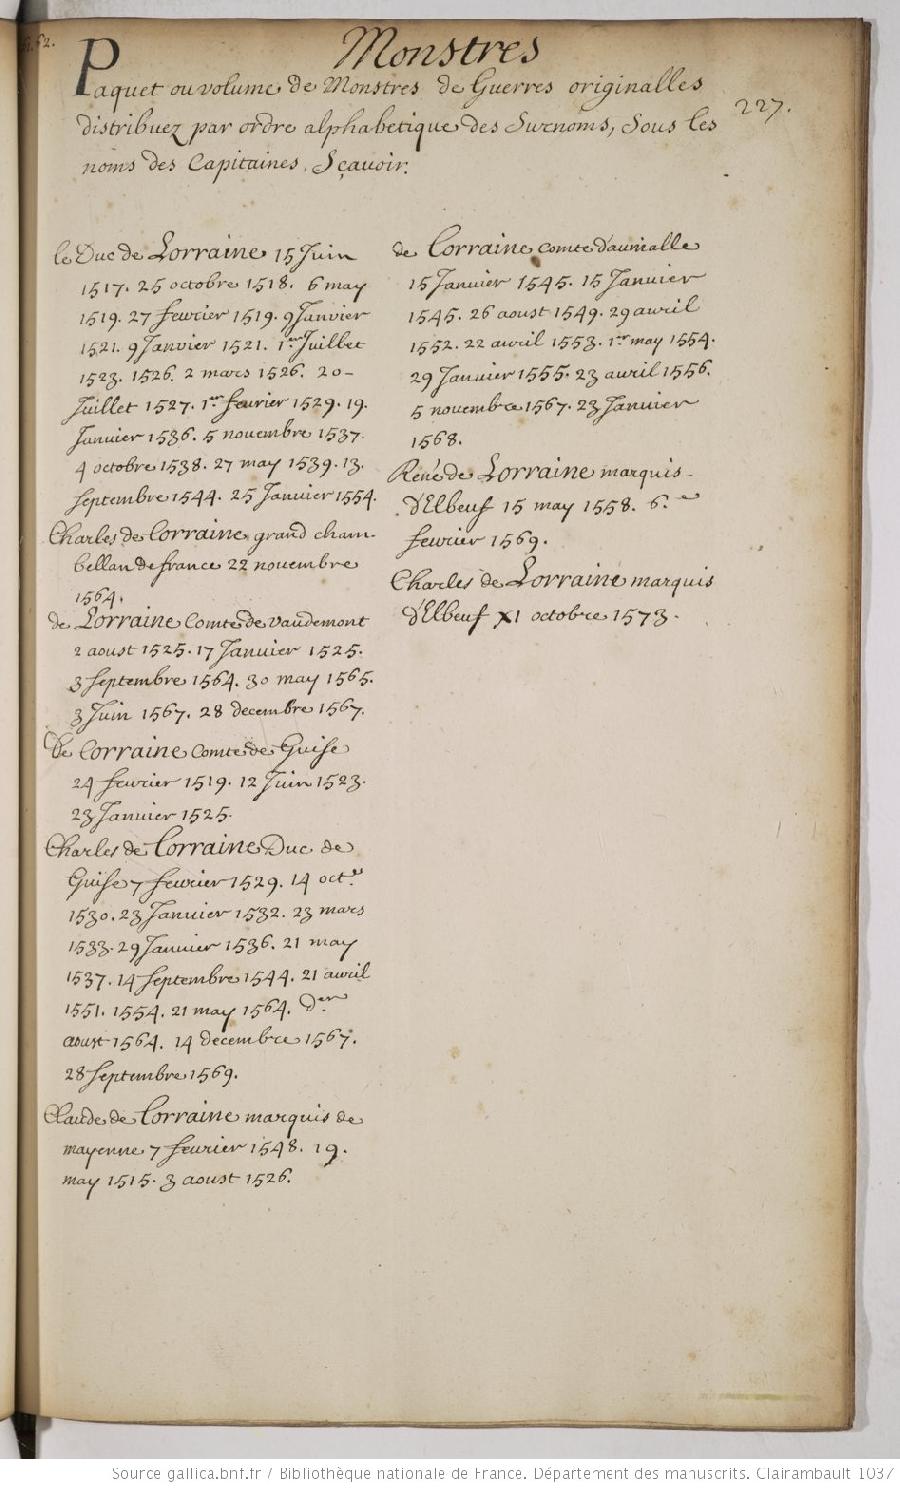 62.
Monstres
227.
Paquet ou volume de Monstres de Guerres originalles
distribuez par ordre alphabetique des Surnoms, sous les
noms des Capitaines. Sçavoir.
le Duc de Lorraine 15 Juin
1517. 25 octobre 1518. 6 may
1519. 27 fevrier 1519. 9 Janvier
1521. 9 Janvier 1521. 1er Juillet
1523. 1526. 2 mars 1526. 20-
Juillet 1527. 1er fevrier 1529. 19.
Janvier 1536. 5 novembre 1537
4 octobre 1538. 27 may 1539. 13.
septembre 1544. 25 Janvier 1554.
Charles de Lorraine grand cham-
bellan de france 22 novembre
1564.
de Lorraine Comte de Vaudemont
2 aoust 1525. 17 Janvier 1525.
3 septembre 1564. 30 may 1565.
3 Juin 1567. 28 decembre 1567.
De Lorraine Comte de Guise
24 fevrier 1519. 12 Juin 1523.
23 Janvier 1525.
Charles de Lorraine Duc de
Guise 7 fevrier 1529. 14 octe
1530. 23 Janvier 1532. 23 mars
1533. 29 Janvier 1536. 21 may
1537. 14 septembre 1544. 21 avril
1551. 1554. 21 may 1564. der
aoust 1564. 14 decembre 1567.
28 septembre 1569.
Claude de Lorraine marquis de
mayenne 7 fevrier 1548. 19.
may 1515. 3 aoust 1526.
de Lorraine comte d'aumalle
15 Janvier 1545. 15 Janvier
1545. 26 aoust 1549. 29 avril
1552. 22 avril 1553. 1er may 1554.
29 Janvier 1555. 23 avril 1556.
5 novembre 1567. 23 Janvier
1568.
René de Lorraine marquis
d'Elbeuf 15 may 1558. 6.e
fevrier 1569.
Charles de Lorraine marquis
d'Elbeuf XI octobre 1573.
Source gallica.bnf.fr / Bibliothèque nationale de France. Département des manuscrits. Clairambault 1037